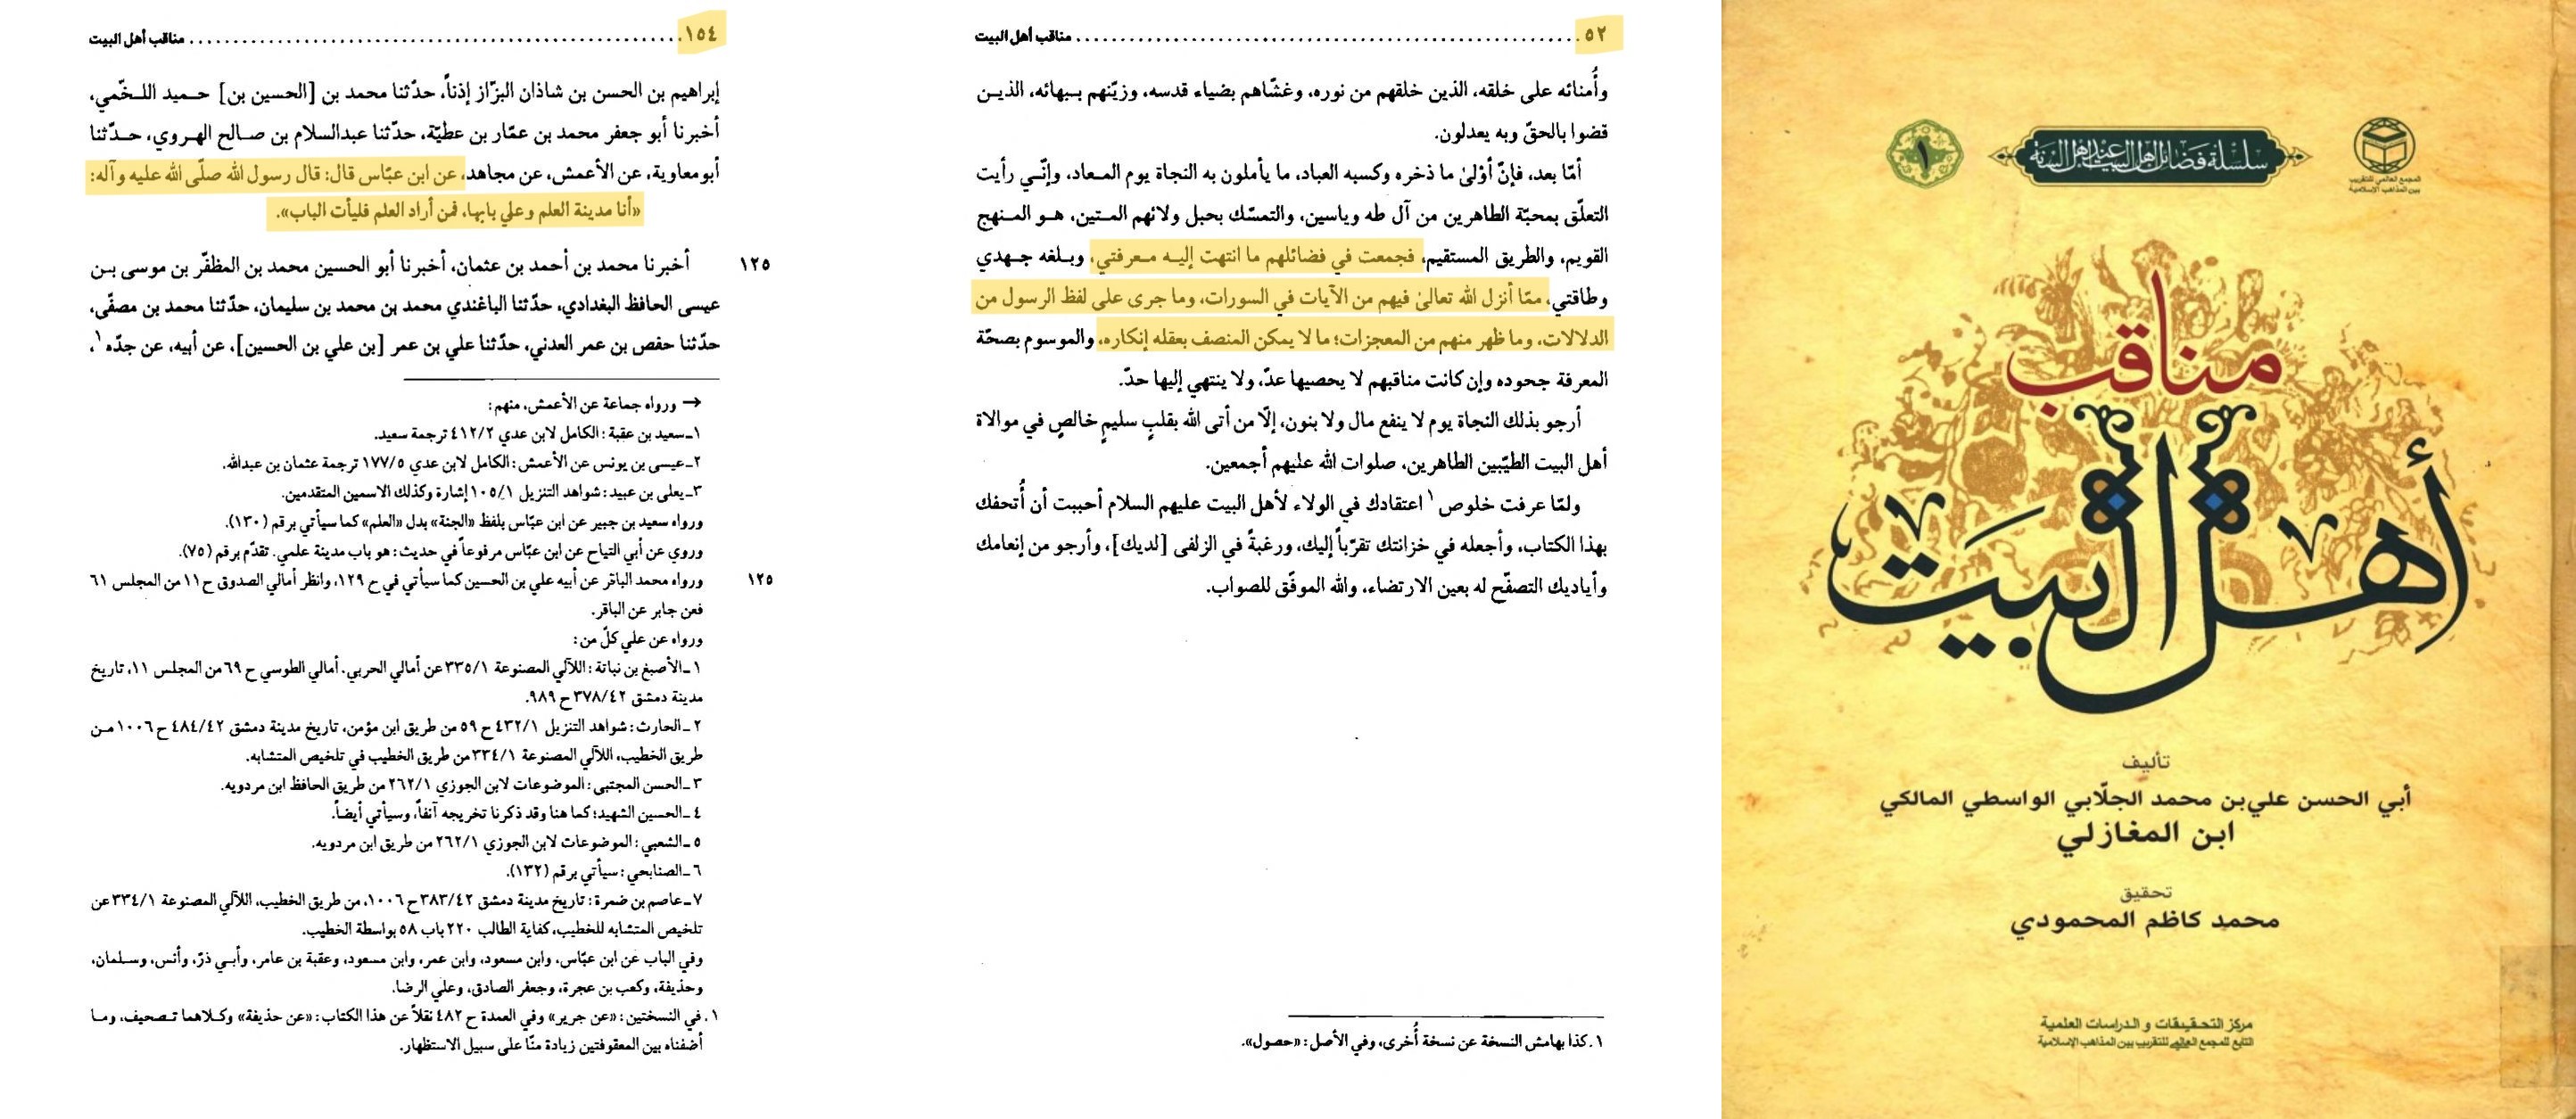 المجمع العالمي للتقريب
بين المذاهب الإسلامية
سلسلة فضائل أهل البيت عند أهل السنة
١
مناقب
أهل البيت
تأليف
أبي الحسن علي بن محمد الجلّابي الواسطي المالكي
ابن المغازلي
تحقيق
محمد كاظم المحمودي
مركز التحقيقات و الدراسات العلمية
التابع للمجمع العالمي للتقريب بين المذاهب الإسلامية
٥٢ ........ مناقب أهل البيت
وأُمنائه على خلقه، الذين خلقهم من نوره، وغشّاهم بضياء قدسه، وزيّنهم بـبهائه، الذيـن
قضوا بالحقّ وبه يعدلون.
أمّا بعد، فإنّ أوْلىٰ ما ذخره وكسبه العباد، ما يأملون به النجاة يوم المـعاد، وإنّـي رأيت
التعلّق بمحبّة الطاهرين من آل طه وياسين، والتمسّك بحبل ولائهم المـتين، هـو المـنهج
القويم، والطريق المستقيم، فجمعت في فضائلهم ما انتهت إليـه مـعرفتي، وبـلغه جـهدي
وطاقتي، ممّا أنزل الله تعالىٰ فيهم من الآيات في السورات، وما جرى على لفظ الرسول من
الدلالات، وما ظهر منهم من المعجزات؛ ما لا يمكن المنصف بعقله إنكاره، والموسوم بصحّة
المعرفة جحوده وإن كانت مناقبهم لا يحصيها عدّ، ولا ينتهي إليها حدّ.
أرجو بذلك النجاة يوم لا ينفع مال ولا بنون، إلّا من أتى الله بقلبٍ سليمٍ خالصٍ في موالاة
أهل البيت الطيّبين الطاهرين، صلوات الله عليهم أجمعين.
ولمّا عرفت خلوص١ اعتقادك في الولاء لأهل البيت عليهم السلام أحببت أن أُتحفك
بهذا الكتاب، وأجعله في خزانتك تقرّباً إليك، ورغبةً في الزلفى [لديك]، وأرجو من إنعامك
وأياديك التصفّح له بعين الارتضاء، والله الموفّق للصواب.
١. كذا بهامش النسخة عن نسخة أُخرى، وفي الأصل: «حصول».
١٥٤ ........ مناقب أهل البيت
إبراهيم بن الحسن بن شاذان البزّاز إذناً، حدّثنا محمد بن [الحسين بن] حـميد اللـخّمي،
أخبرنا أبو جعفر محمد بن عمّار بن عطيّة، حدّثنا عبدالسلام بن صـالح الهـروي، حـدّثنا
أبومعاوية، عن الأعمش، عن مجاهد، عن ابن عبّاس قال: قال رسول الله صلّى الله عليه وآله:
«أنا مدينة العلم وعلي بابها، فمن أراد العلم فليأت الباب».
١٢٥ أخبرنا محمد بن أحمد بن عثمان، أخبرنا أبو الحسين محمد بن المظفّر بن موسى بـن
عيسى الحافظ البغدادي، حدّثنا الباغندي محمد بن محمد بن سليمان، حدّثنا محمد بن مصفّى،
حدّثنا حفص بن عمر العدني، حدّثنا علي بن عمر [بن علي بن الحسين]، عن أبيه، عن جدّه١،
→ ورواه جماعة عن الأعمش، منهم:
١ـ سعيد بن عقبة: الكامل لابن عدي ٤١٢/٢ ترجمة سعيد.
٢ـ عيسى بن يونس عن الأعمش: الكامل لابن عدي ١٧٧/٥ ترجمة عثمان بن عبدالله.
٣ـ يعلى بن عبيد: شواهد التنزيل ١٠٥/١ إشارة وكذلك الاسمين المتقدمين.
ورواه سعيد بن جبير عن ابن عبّاس بلفظ «الجنة» بدل «العلم» كما سيأتي برقم (١٣٠).
وروي عن أبي التياح عن ابن عبّاس مرفوعاً في حديث: هو باب مدينة علمي. تقدّم برقم (٧٥).
١٢٥ ورواه محمد الباقر عن أبيه علي بن الحسين كما سيأتي في ح ١٢٩، وانظر أمالي الصدوق ح ١١ من المجلس ٦١
فعن جابر عن الباقر.
ورواه عن علي كلّ من:
١ ـ الأصبغ بن نباتة: اللآلي المصنوعة ٣٣٥/١ عن أمالي الحربي، أمالي الطوسي ح ٦٩ من المجلس ١١، تاريخ
مدينة دمشق ٣٧٨/٤٢ ح ٩٨٩.
٢ ـ الحارث: شواهد التنزيل ٤٣٢/١ ح ٥٩ من طريق ابن مؤمن، تاريخ مدينة دمشق ٤٨٤/٤٢ ح ١٠٠٦ مـن
طريق الخطيب، اللآلي المصنوعة ٣٣٤/١ من طريق الخطيب في تلخيص المتشابه.
٣ ـ الحسن المجتبى: الموضوعات لابن الجوزي ٢٦٢/١ من طريق الحافظ ابن مردويه.
٤ ـ الحسين الشهيد؛ كما هنا وقد ذكرنا تخريجه آنفاً، وسيأتي أيضاً.
٥ ـ الشعبي: الموضوعات لابن الجوزي ٢٦٢/١ من طريق ابن مردويه.
٦ ـ الصنابحي: سيأتي برقم (١٣٢).
٧ ـ عاصم بن ضمرة: تاريخ مدينة دمشق ٣٨٣/٤٢ ح ١٠٠٦، من طريق الخطيب، اللآلي المصنوعة ٣٣٤/١ عن
تلخيص المتشابه للخطيب، كفاية الطالب ٢٢٠ باب ٥٨ بواسطة الخطيب.
وفي الباب عن ابن عبّاس، وابن مسعود، وابن عمر، وابن مسعود، وعقبة بن عامر، وأبـي ذرّ، وأنس، وسـلمان،
وحذيفة، وكعب بن عجرة، وجعفر الصادق، وعلي الرضا.
١. في النسختين: «عن جرير» وفي العمدة ح ٤٨٢ نقلاً عن هذا الكتاب: «عن حذيفة» وكـلاهما تـصحيف، ومـا
أضفناه بين المعقوفتين زيادة منّا على سبيل الاستظهار.